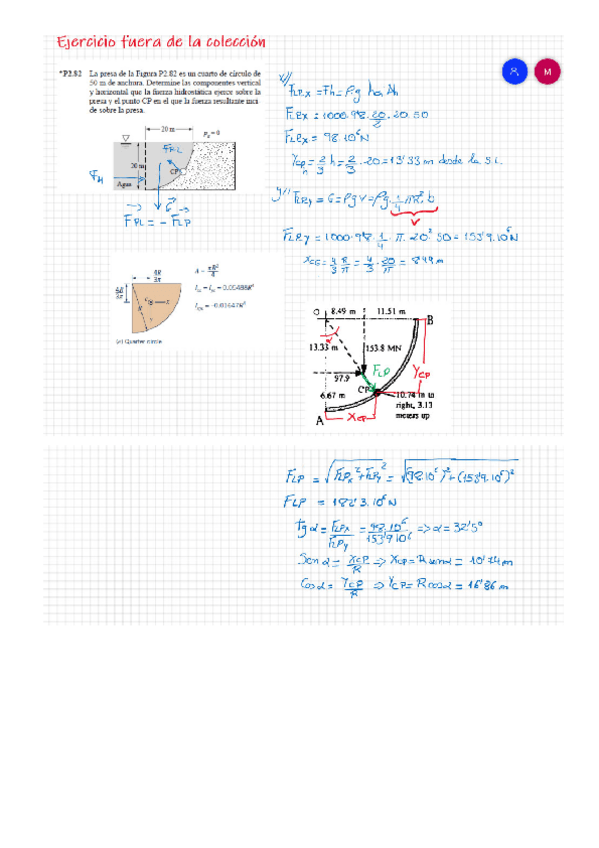 Ejercicio fuera de la colección
*P2.82 La presa de la Figura P2.82 es un cuarto de círculo de
50 m de anchura. Determine las componentes vertical
y horizontal que la fuerza hidrostática ejerce sobre la
presa y el punto CP en el que la fuerza resultante inci-
de sobre la presa.
20 m
Pa = 0
FPL
20 m
CP
FH
Agua
G
FPL = - FLP
M
x//
FLPx = Fh = ρ·g hG Ah
FLPx = 1000·9'8·20/2·20·50
FLPx = 98·10⁶N
YCPh = 2/3 h = 2/3 · 20 = 13'33 m desde la s.l.
y// FLPy = G = ρgV = ρg·1/4 πR²·b
V
FLPy = 1000·9'8·1/4·π·20²·50 = 153'9·10⁶N
XCG = 4/3 R/π = 4/3·20/π = 8'49 m
4R/3π
4R/3π
A = πR²/4
R
(e) Quarter circle
O 8.49 m 11.51 m B
α
13.33 m
153.8 MN
FLP
YCP
97.9
CP
6.67 m
10.74 m to
right, 3.13
meters up
A XCP
FLP = √FLPx² + FLPy² = √(98·10⁶)² + (153'9·10⁶)²
FLP = 182'3·10⁶N
tg α = FLPx/FLPy = 98·10⁶/153'9·10⁶ => α = 32'5°
Sen α = XCP/R => XCP = R sen α = 10'74 m
Cos α = YCP/R => YCP = R cos α = 16'86 m